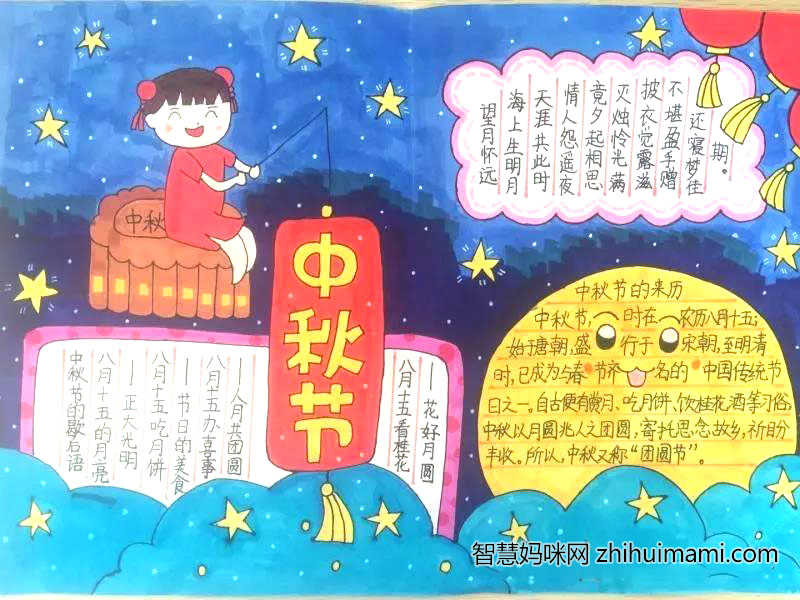 中秋
中秋节
望月怀远
海上生明月
天涯共此时
情人怨遥夜
竟夕起相思
灭烛怜光满
披衣觉露滋
不堪盈手赠
还寝梦佳
期。
中秋节的歇后语
八月十五的月亮
——正大光明
八月十五吃月饼
——节日的美食
八月十五办喜事
——人月共团圆
八月十五看桂花
——花好月圆
中秋节的来历
中秋节,时在农历八月十五;
始于唐朝,盛行于宋朝,至明清
时,已成为与春节齐名的中国传统节
日之一。自古便有赏月、吃月饼、饮桂花酒等习俗,
中秋以月圆兆人之团圆,寄托思念故乡,祈盼
丰收。所以,中秋又称“团圆节”。
智慧妈咪网 zhihuimami.com